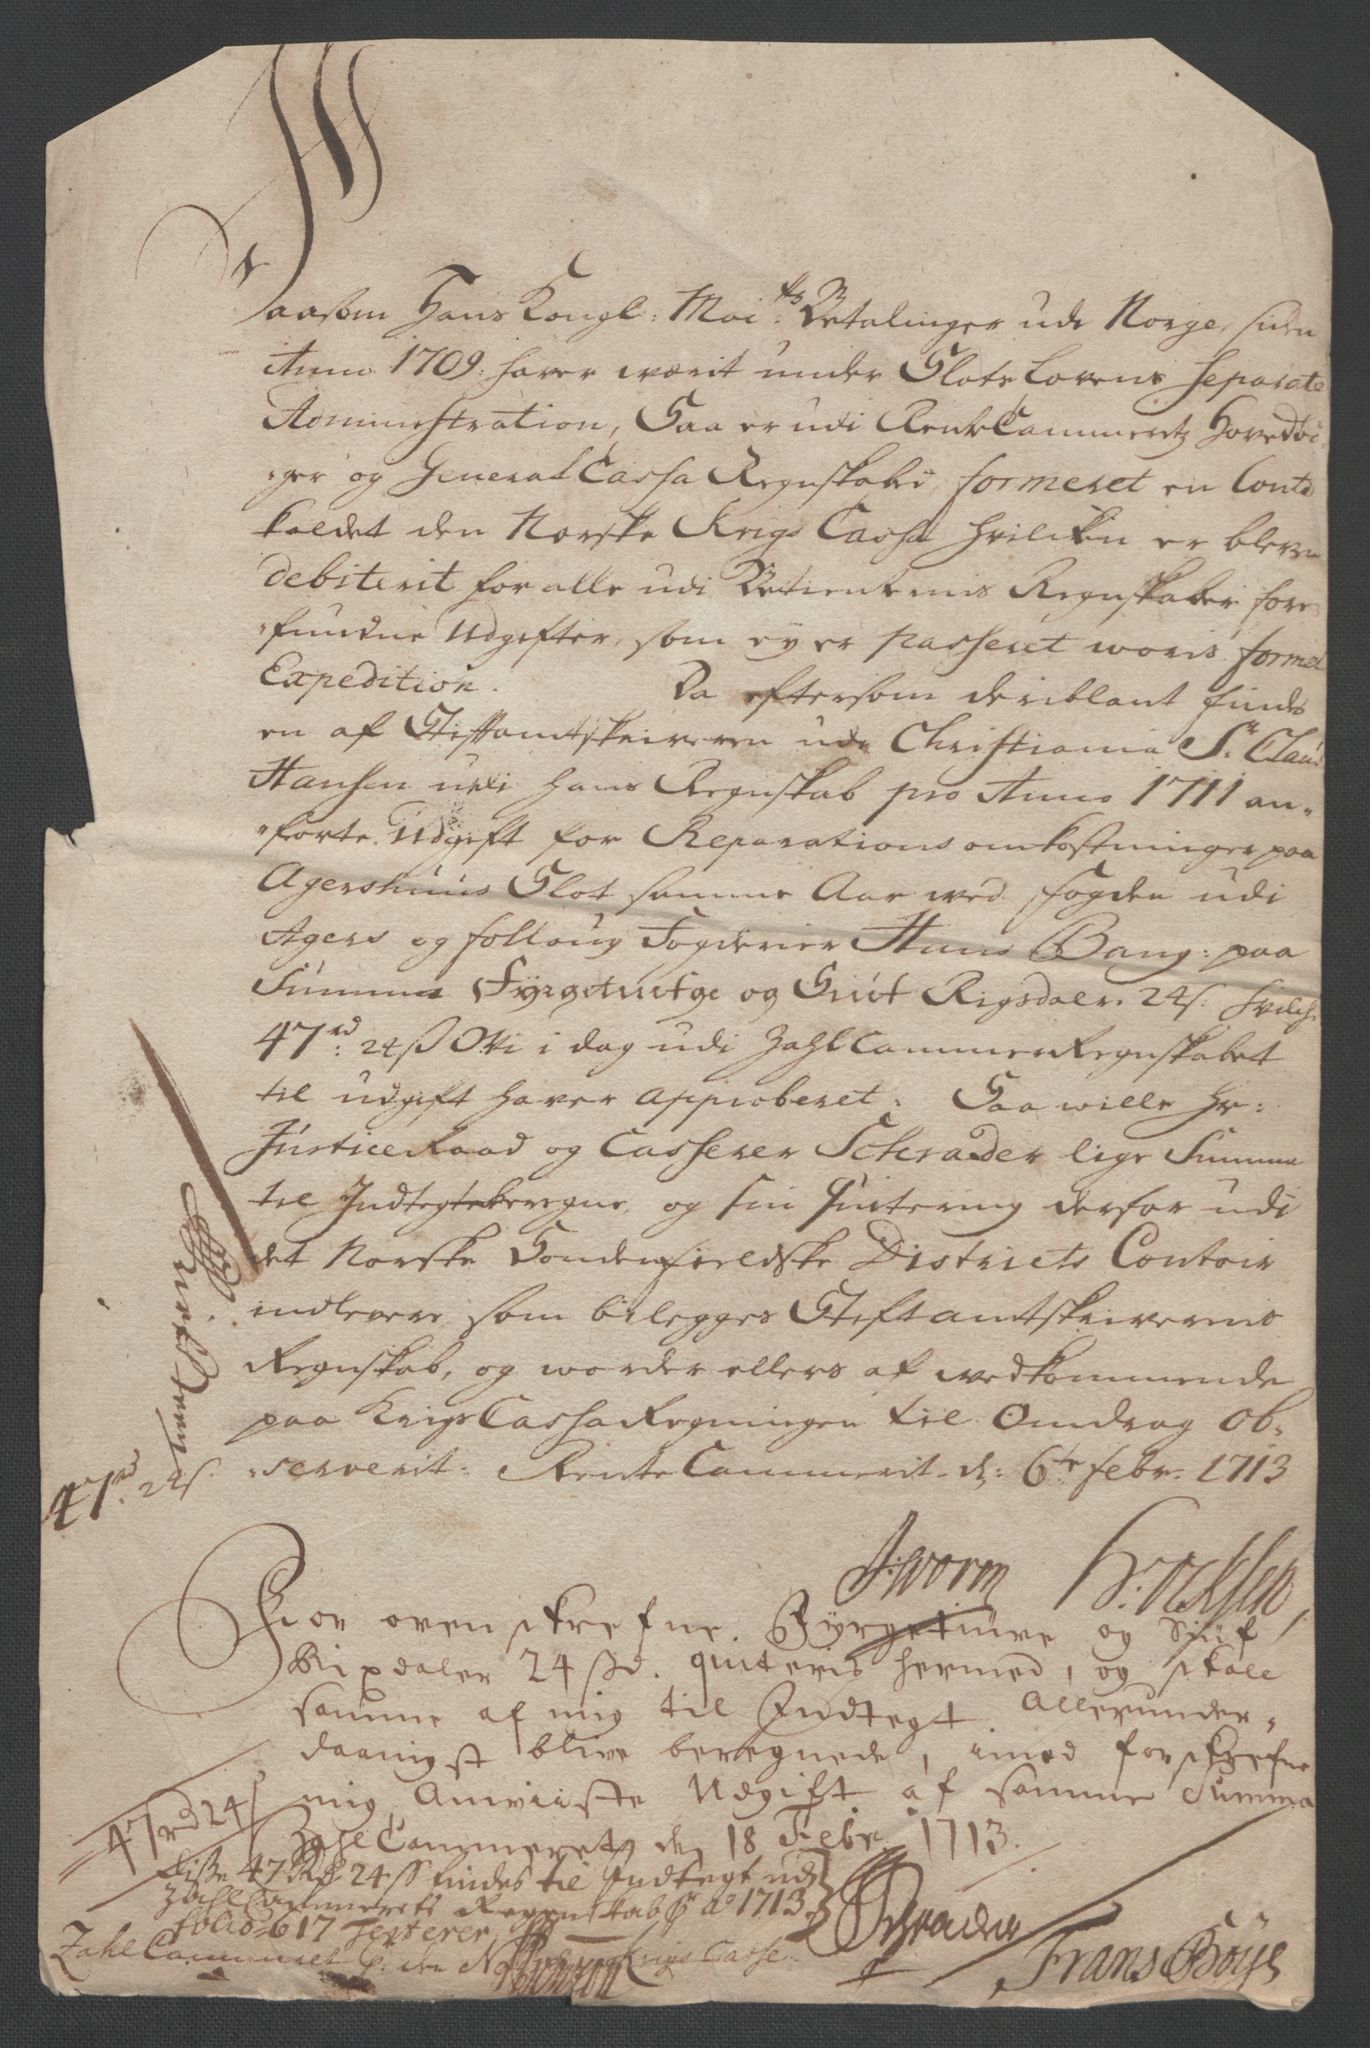 Saasom Hans Kongl: Mai:ts Betalinger udi Norge, siden
Anno 1709: haver wærit under Slots Lovens Separate
Administration, Saa er udi RenteCammeretz Hovedbö-
-ger og General Cassa Regnskaber formeret en Conto
kaldet den Norske Krigs Cassa hvilcken er bleven
debiterit for alle udi Betienternis Regnskaber fore-
-fundne Udgifter, som ey er passeret woris formel
Expedition. Da eftersom deriblant findes
en af Stiftamtskriveren udi Christiania Sr. Claus
Hansen udi hans Regnskab pro Anno 1711 an-
-förte Udgift for Reparations omkostninger paa
Agershuus Slot samme Aar wed fogden udi
Agers og folloug Fogderier Hans Bang: paa
Summa Fyrgetufge og Siuf Rigsdaler 24s: hvilche
47rd: 24ß Wi i dag udi ZahlCammerRegnskabet
til udgift haver approberet: Saa wille Hr:
JusticeRaad og Casserer Schrader lige Summa
til Indtegt beregne, og sin Quitering derfor udi
det Norske Söndenfieldske Districts Contoir
indlevere som bilegges Stiftamtskriverens
Regnskab, og worder ellers af wedkommende
paa KrigsCassaRegningen til Omdrag ob-
-serverit. RenteCammerit d: 6te febr: 1713
47rd: 24s.
J: Worm
For ovenskrefne Fyrgetiuve og Siuf
Rixdaler 24 ßd. quiteris hermed, og skall
samme af mig til Indtegt Allerunder-
daanigst blive beregnede, imod forskrefne
mig Anviiste Udgift af samme Summa
ZahlCammeret d. 18 Febr. 1713.
47rd 24ß
Schrader
Disse 47 Rd 24 ß findes til Indtegt udj
ZahlCammerets Regenskab pr Ao 1713
folio 617
ZahlCammeret d: den Norske Krigs Casse
Frans Böys